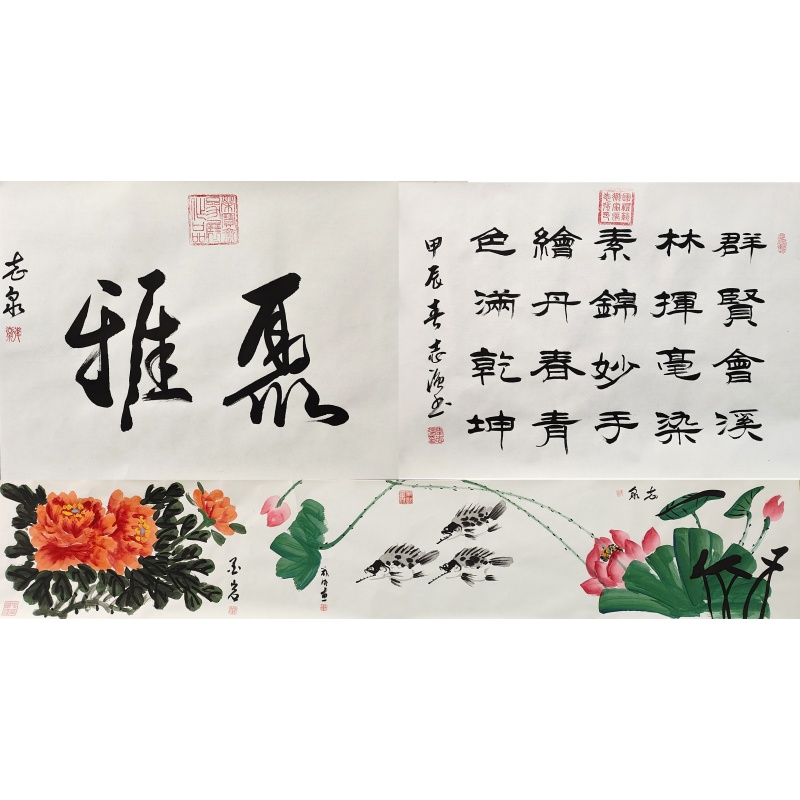 聚雅
志泉
群賢會溪
林揮毫染
素錦妙手
繪丹春青
色滿乾坤
甲辰春志
志泉